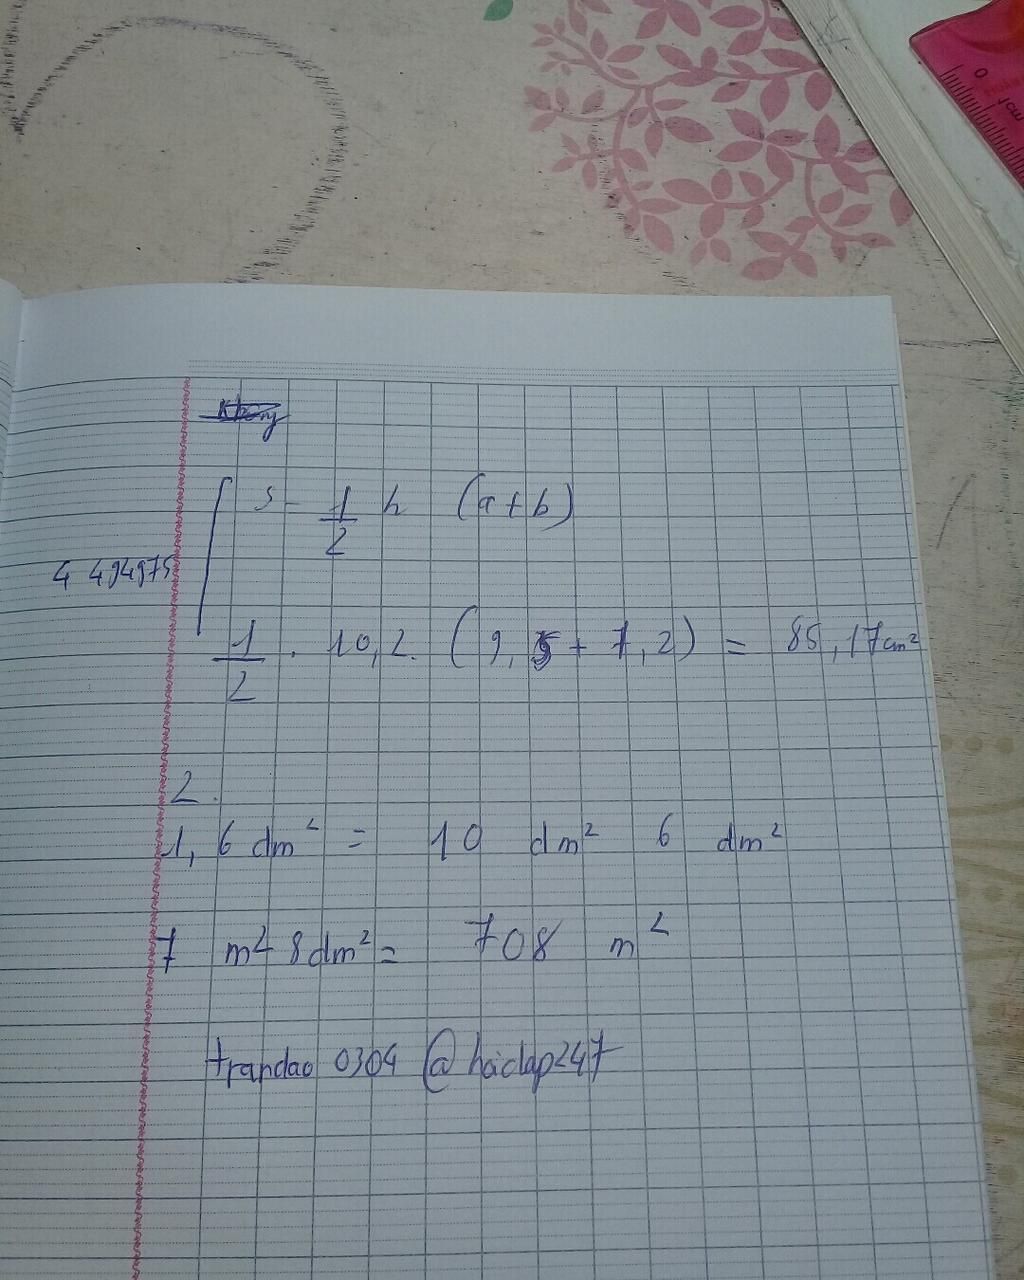 S = 1/2 h (a+b)
4 494975
1/2 . 10,2. (9,5 + 7,2) = 85,17cm²
2.
1,6 dm² = 10 dm² 6 dm²
7 m² 8dm² = 708 m²
trandao 0304 @hoidap247
0